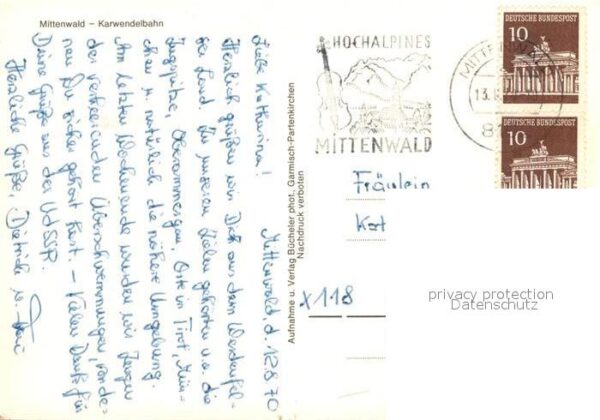 Mittenwald – Karwendelbahn
Mittenwald d. 12.8.70
Liebe Katharina!
Herzlich grüßen wir Dich aus dem Werdenfel-
ser Land. Zu unseren Zielen gehörten u.a. die
Zugspitze, Oberammergau, Orte in Tirol, Mün-
chen u. natürlich die nähere Umgebung.
Am letzten Wochenende wurden wir Zeugen
der verheerenden Überschwemmungen, von de-
nen Du sicher gehört hast. – Vielen Dank für
Deine Grüße aus der UdSSR.
Herzliche Grüße, Dietrich u.
Aufnahme u. Verlag Bücheler phot., Garmisch-Partenkirchen
Nachdruck verboten
HOCHALPINES
MITTENWALD
MITTENWA
13.
81
10
DEUTSCHE BUNDESPOST
10
DEUTSCHE BUNDESPOST
Fräulein
Kat
x118
privacy protection
Datenschutz